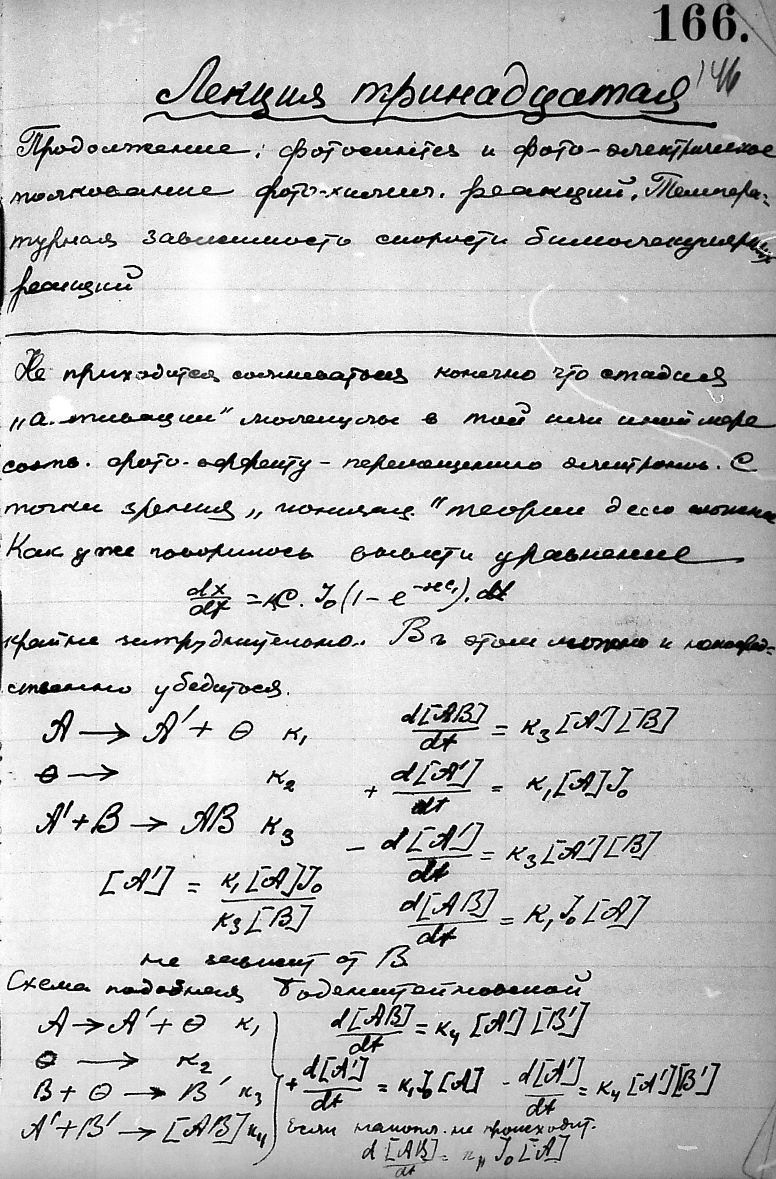 166.
146
Лекция тринадцатая
Продолжение: фотосинтез и фото-электрическое
толкование фото-химич. реакций. Темпера-
турная зависимость скорости бимолекулярных
реакций
Не приходится сомневаться конечно что стадия
„активации" молекулы в той или иной мере
соотв. фото-эффекту - перемещению электронов. С
точки зрения „ теории
Как уже говорилось вывести уравнение
dx/dt = κC. J₀(1 - e^-κc₁). dt
крайне затруднительно. Въ этом можно и непосред-
ственно убедиться.
A → A' + Θ κ₁ d[AB]/dt = κ₃[A'][B]
Θ → κ₂ + d[A']/dt = κ₁[A]J₀
A' + B → AB κ₃ - d[A']/dt = κ₃[A'][B]
[A'] = κ₁[A]J₀/κ₃[B] d[AB]/dt = κ₁J₀[A]
не зависит от B
Схема подобная Боденштейновской
A → A' + Θ κ₁ d[AB]/dt = κ₄[A'][B']
Θ → κ₂
B + Θ → B' κ₃ + d[A']/dt = κ₁J₀[A] - d[A']/dt = κ₄[A'][B']
A' + B' → [AB] κ₄ Если накопл. не происходит.
d[AB]/dt = J₀[A]